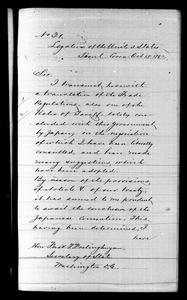 No. 31.
Legation of the United States
Seoul, Corea, Oct 18, 1883
Sir:
I transmit herewith
a translation of the Trade
Regulations, also one of the
Rules of Tariff, lately con-
cluded with this Government
by Japan, in the negotiation
of which I have been
consulted, and have made
many suggestions, which
have been adopted.
By reason of the provisions
of Article of our Treaty
it has seemed to me prudent
to await the conclusion of the
Japanese Convention. This
having been determined, I
have
Hon. Fredk T. Frelinghuysen
Secretary of State
Washington D.C.